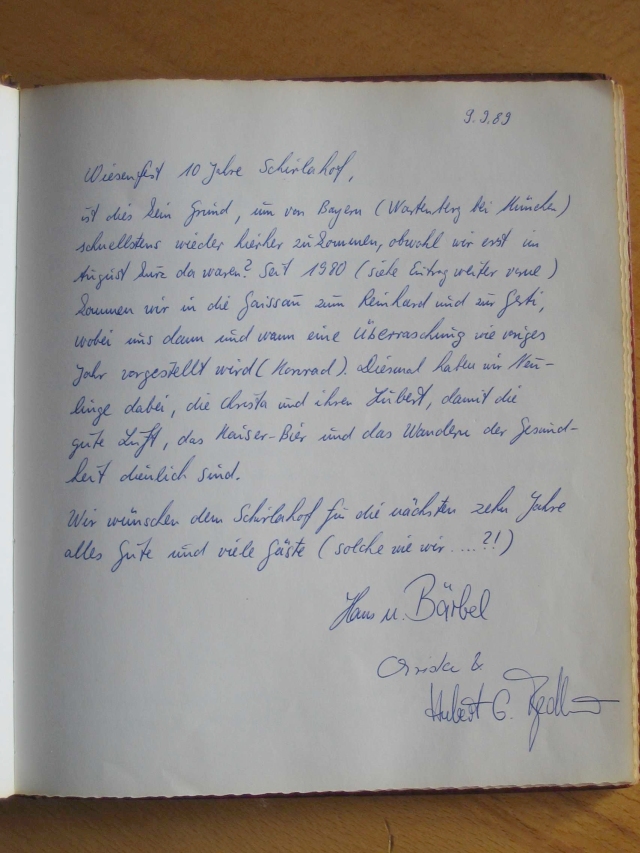 9.9.89
Wiesenfest 10 Jahre Schirlahof,
ist dies kein Grund, um von Bayern (Wartenberg bei München)
schnellstens wieder hierher zu kommen, obwohl wir erst im
August kurz da waren? Seit 1980 (siehe Eintrag weiter vorne)
kommen wir in die Gaissau zum Reinhard und zur Gerti,
wobei uns dann und wann eine Überraschung wie voriges
Jahr vorgestellt wird (Konrad). Diesmal haben wir Neu-
linge dabei, die Christa und ihren Hubert, damit die
gute Luft, das Kaiser-Bier und das Wandern der Gesund-
heit dienlich sind.
Wir wünschen dem Schirlahof für die nächsten zehn Jahre
alles Gute und viele Gäste (solche wie wir ....?!)
Hans u. Bärbel
Christa &
Hubert G.